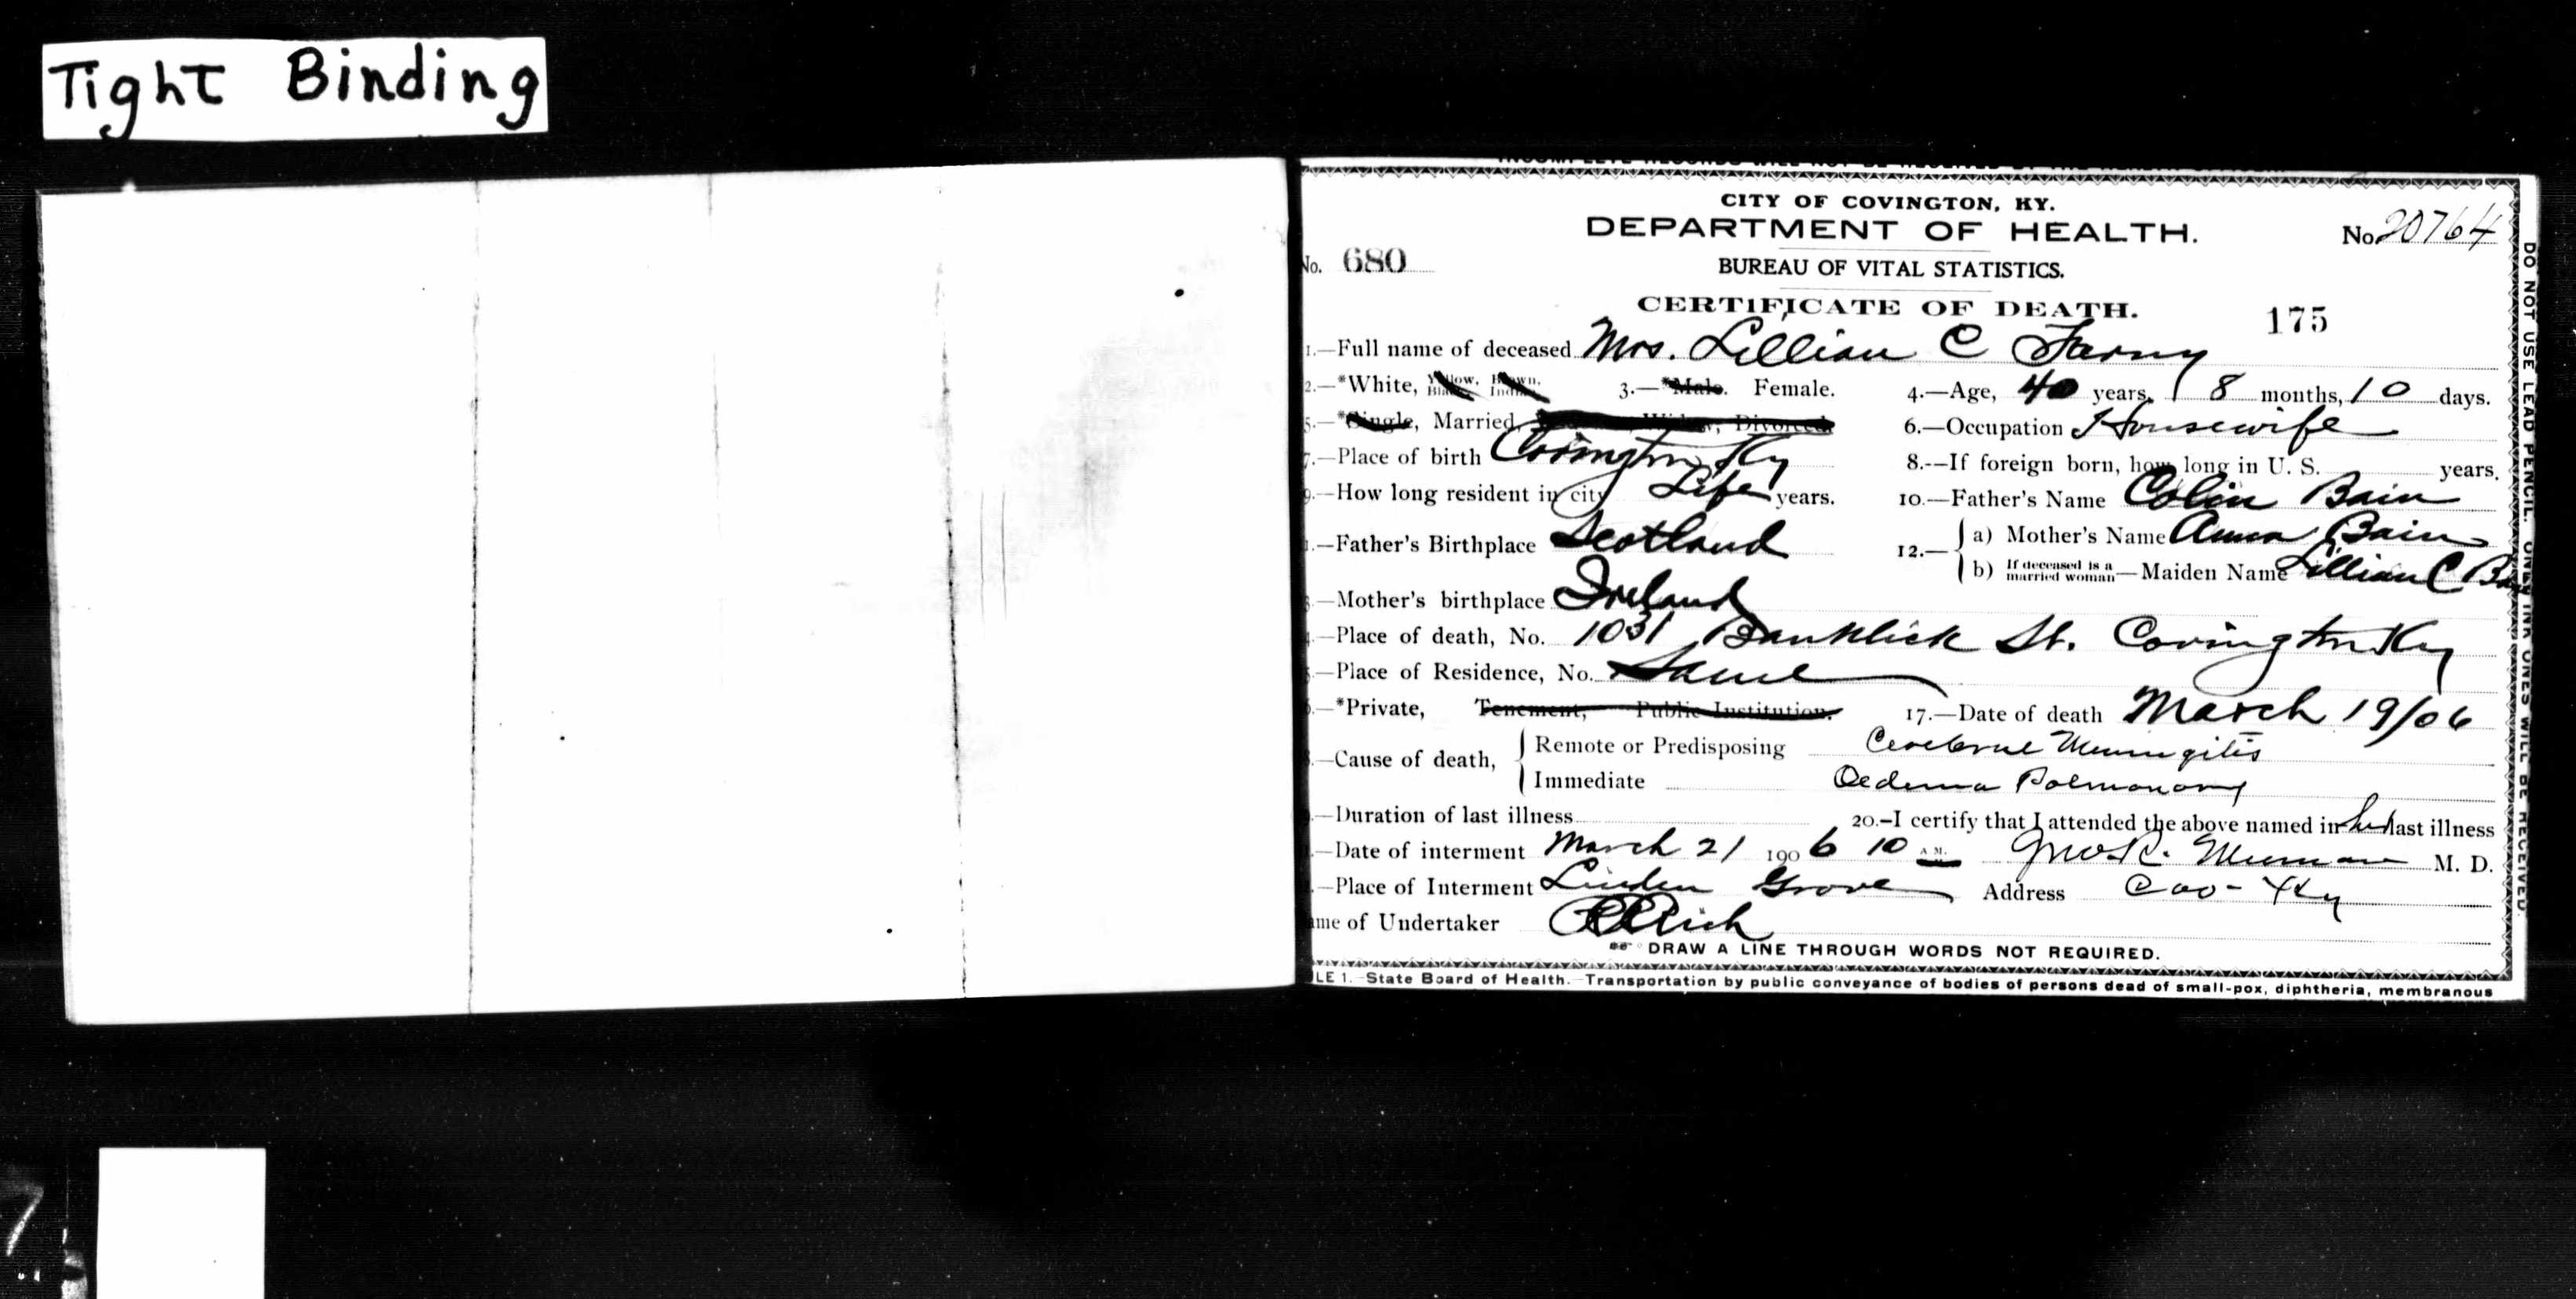 Tight Binding
CITY OF COVINGTON, KY.
DEPARTMENT OF HEALTH.
No. 20764
No. 680
BUREAU OF VITAL STATISTICS.
CERTIFICATE OF DEATH.
175
1.—Full name of deceased Mrs. Lillian C Farny
2.—*White, Yellow, Brown, Black, Indian, 3.—*Male. Female. 4.—Age, 40 years, 8 months, 10 days.
5.—*Single, Married, Widow, Divorced. 6.—Occupation Housewife
7.—Place of birth Covington Ky 8.--If foreign born, how long in U. S. years.
9.—How long resident in city Life years. 10.—Father's Name Colin Bain
—Father's Birthplace Scotland 12.— a) Mother's Name Anna Bain
b) If deceased is a married woman—Maiden Name Lillian C Ba
—Mother's birthplace Ireland
—Place of death, No. 1031 Banklick St. Covington Ky
—Place of Residence, No. Same
—*Private, Tenement, Public Institution. 17.—Date of death March 19/06
—Cause of death, Remote or Predisposing Cerebral Meningitis
Immediate Oedema Polmonary
—Duration of last illness 20.—I certify that I attended the above named in her last illness
—Date of interment March 21 1906 10 A.M. M. D.
—Place of Interment Linden Grove Address Cov- Ky
me of Undertaker
DRAW A LINE THROUGH WORDS NOT REQUIRED.
LE 1.—State Board of Health.—Transportation by public conveyance of bodies of persons dead of small-pox, diphtheria, membranous
DO NOT USE LEAD PENCIL. ONLY INK ONES WILL BE RECEIVED.